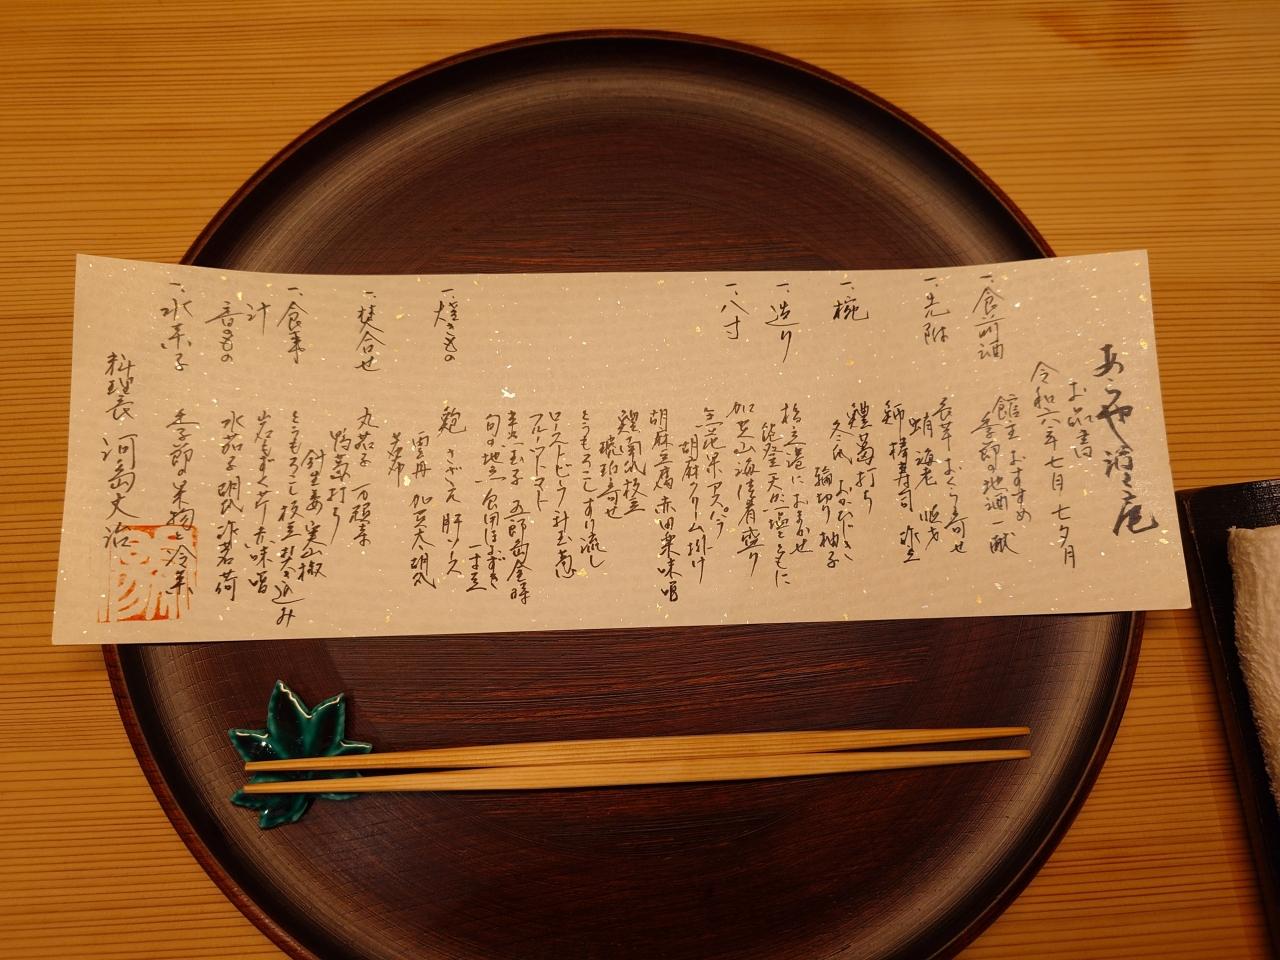 あらや滔々庵
お品書
令和六年七月 七夕月
一、食前酒
館主おすすめ
季節の地酒一献
一、先附
長芋 おくら寄せ
蛸 海老
鰤棒寿司
一、椀
鱧葛打ち
冬瓜
輪切り柚子
一、造り
橋立港におまかせ
能登天然塩とともに
加賀山海津着盛り
一、八寸
無花果アスパラ
胡麻クリーム掛け
胡麻豆腐 赤田楽味噌
鱧南瓜枝豆
琥珀寄せ
とうもろこしすり流し
ローストビーフ 新玉葱
フルーツトマト
半熟玉子 五郎島金時
旬の地魚 食用ほおずき
一寸豆
一、焼きもの
鮑 さざえ 肝ソース
雲丹 加賀太胡瓜
若布
一、焚合せ
丸茄子 万願寺
鴨葛打ち
針生姜 実山椒
一、食事
とうもろこし枝豆炊き込み
汁
岩もずく 芹 赤味噌
香のもの
水茄子 胡瓜 茗荷
一、水菓子
季節の果物と冷菓
料理長 河島丈治